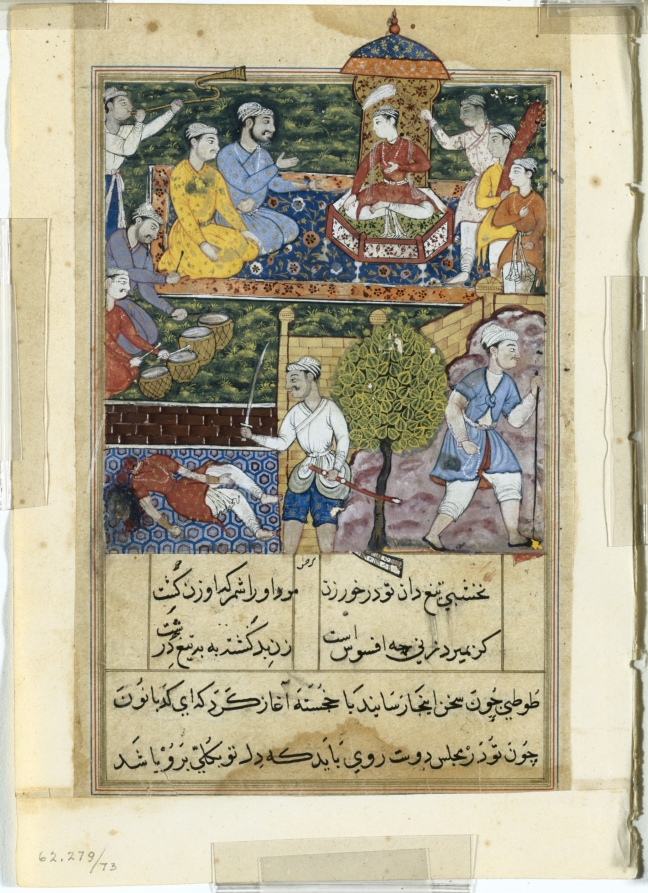 نخشبي تيغ دان تو در خور زن مرد او را شمر که او زن کشت
کر بميرد زني چه افسوس است زن بد کشته به بتيغ درشت
طوطي چون سخن اينجا رسانيد با خجسته آغاز کرد که اي کدبانو
چون تو در مجلس دوست روي بايد که دل تو بکلي برو باشد
62.279/73